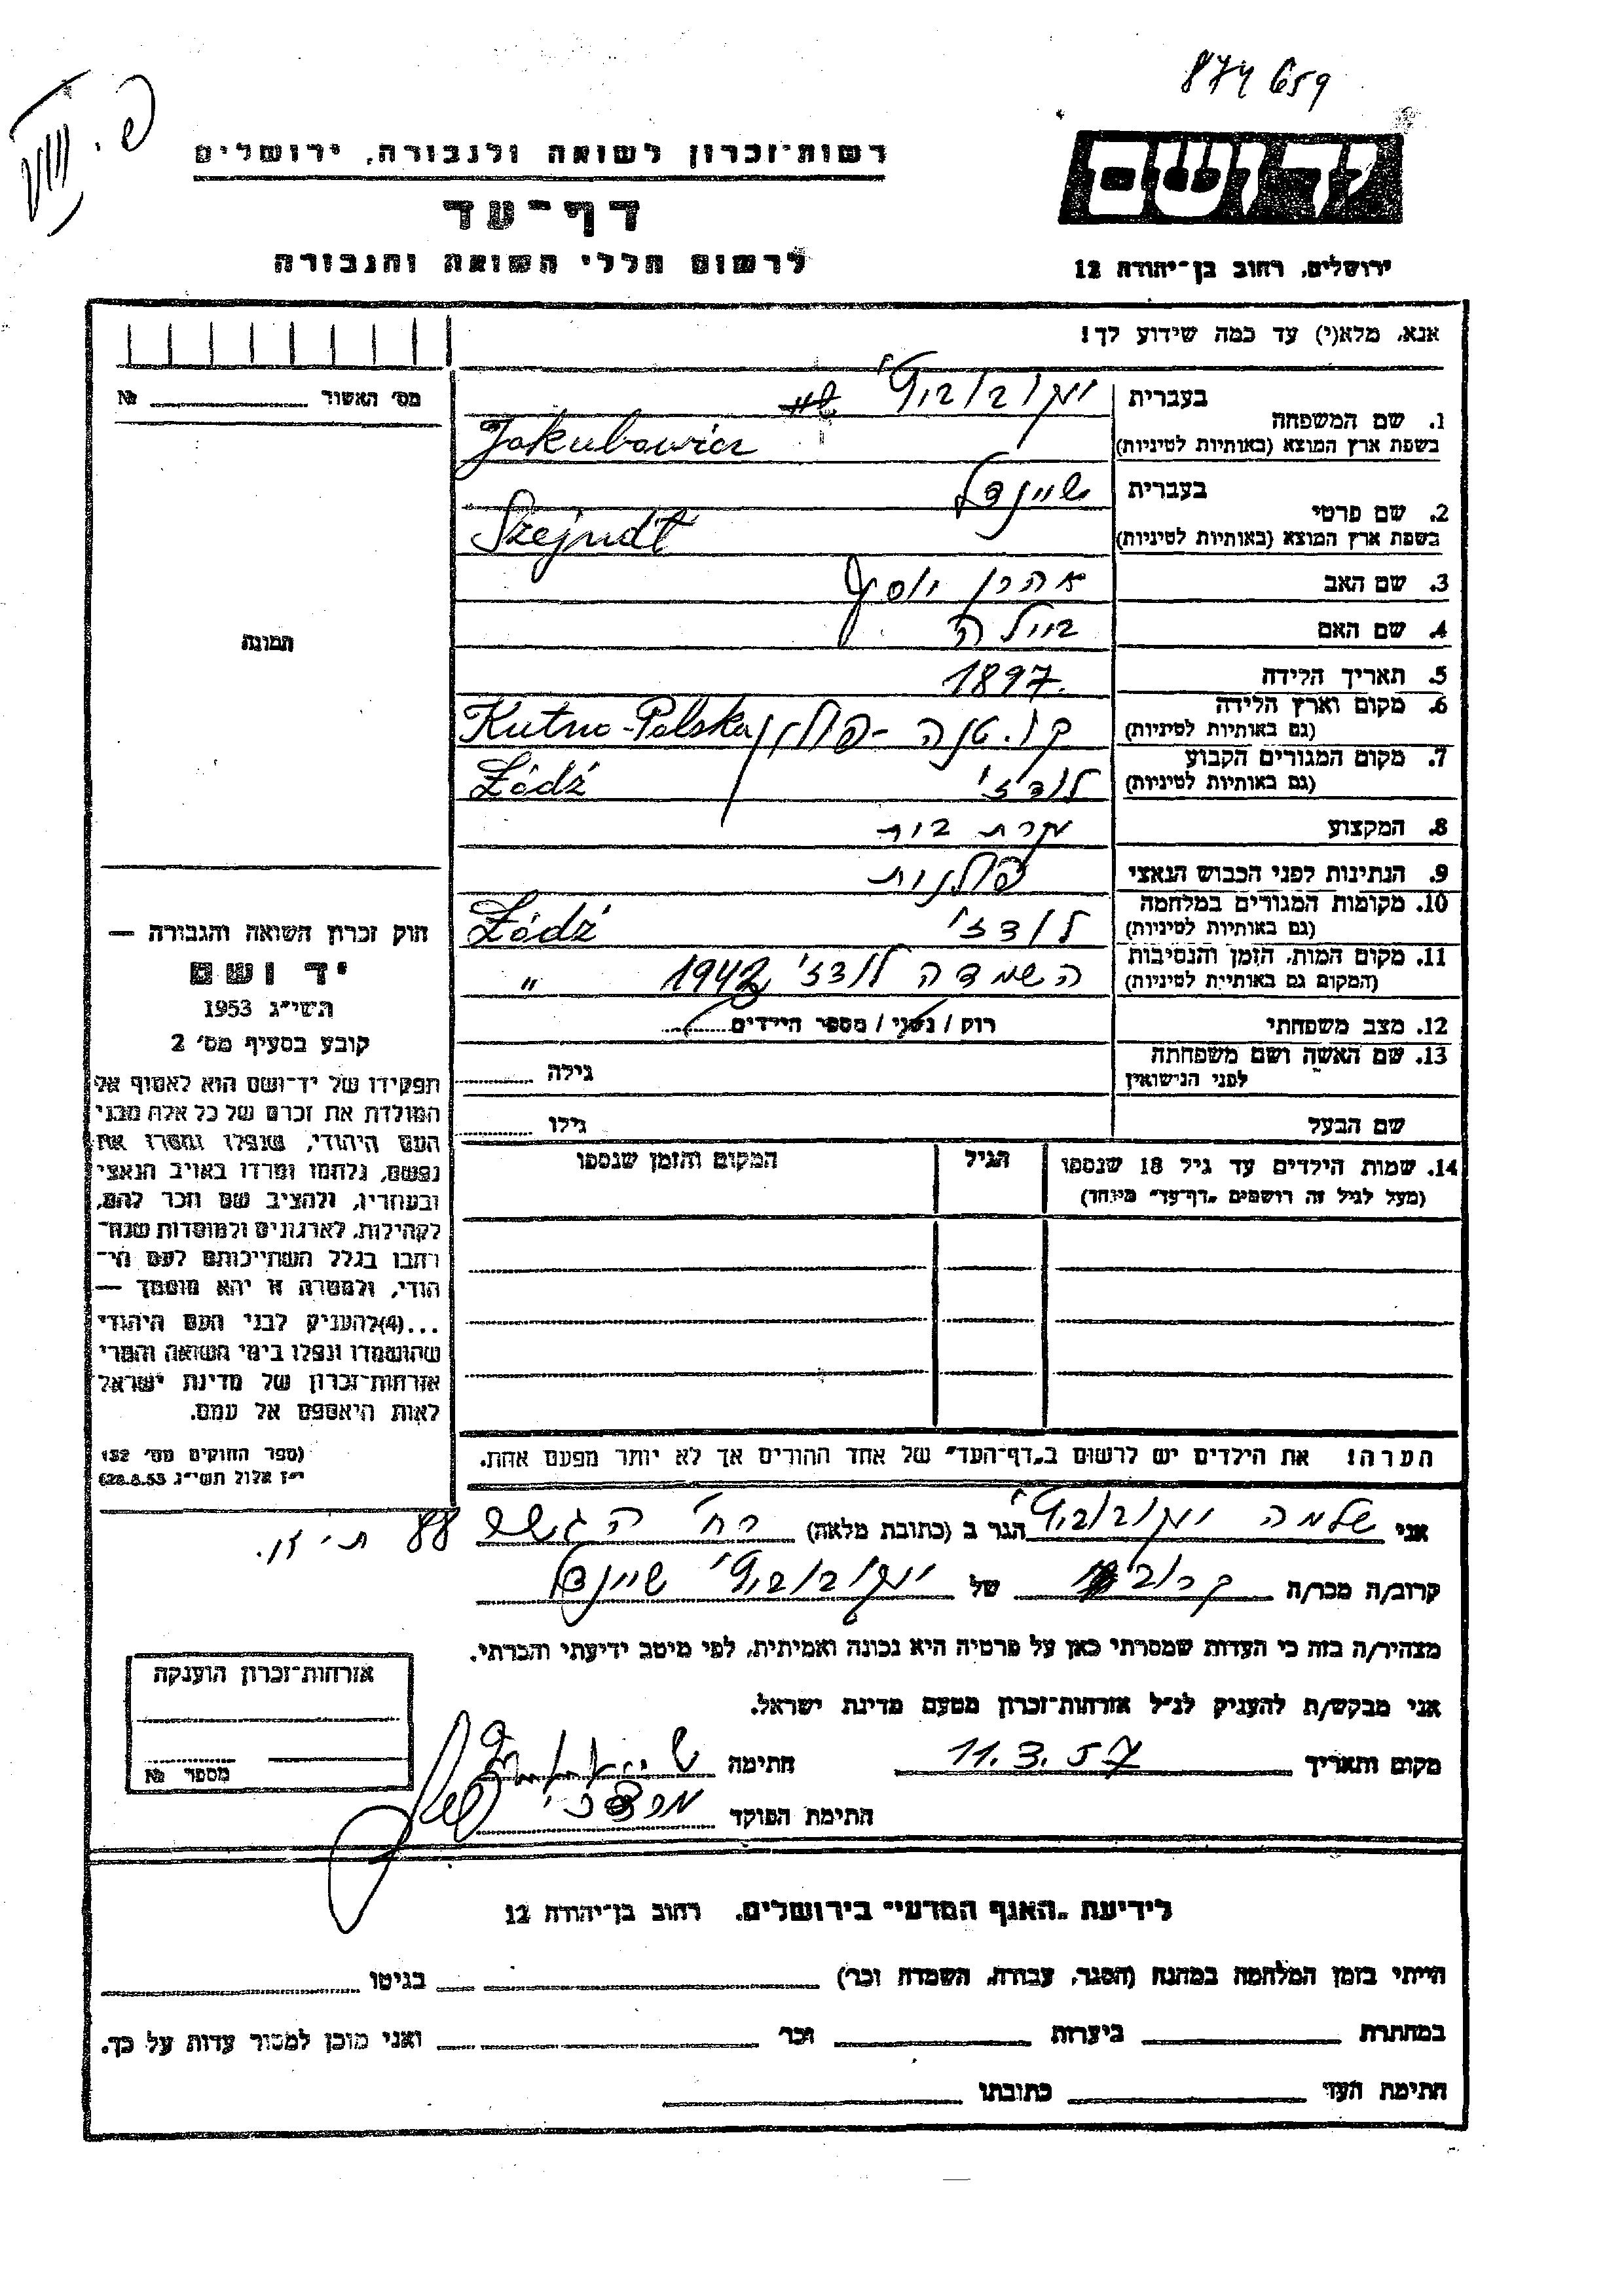 874659
פ.
יד ושם
ירושלים, רחוב בן־יהודה 12
רשות־זכרון לשואה ולגבורה, ירושלים
דף־עד
לרשום חללי השואה והגבורה
אנא, מלא(י) עד כמה שידוע לך!
מס׳ האשור № 
1. שם המשפחה בעברית יעקובוביץ׳
בשפת ארץ המוצא (באותיות לטיניות) Jakubowicz
2. שם פרטי בעברית שיינדל
בשפת ארץ המוצא (באותיות לטיניות) Szejndl
3. שם האב אהרן יוסף
4. שם האם ביילה
5. תאריך הלידה 1897.
6. מקום וארץ הלידה (גם באותיות לטיניות) קוטנה - פולין Kutno-Polska
7. מקום המגורים הקבוע (גם באותיות לטיניות) לודז׳ Łódź
8. המקצוע עקרת בית
9. הנתינות לפני הכבוש הנאצי פולנית
10. מקומות המגורים במלחמה (גם באותיות לטיניות) לודז׳ Łódź
11. מקום המות, הזמן והנסיבות (המקום גם באותיות לטיניות) השמדה לודז׳ 1942 "
12. מצב משפחתי רוק / נשוי / מספר הילדים
13. שם האשה ושם משפחתה לפני הנישואין גילה
שם הבעל גילו
14. שמות הילדים עד גיל 18 שנספו הגיל המקום והזמן שנספו
(מעל לגיל זה רושמים „דף־עד״ מיוחד)
תמונה
חוק זכרון השואה והגבורה —
יד ושם
תשי״ג 1953
קובע בסעיף מס׳ 2
תפקידו של יד־ושם הוא לאסוף אל
המולדת את זכרם של כל אלה מבני
העם היהודי, שנפלו ומסרו את
נפשם, נלחמו ומרדו באויב הנאצי
ובעוזריו, ולהציב שם וזכר להם,
לקהילות, לארגונים ולמוסדות שנח־
רבו בגלל השתייכותם לעם הי־
הודי, ולמטרה זו יהא מוסמך —
...(4)להעניק לבני העם היהודי
שהושמדו ונפלו בימי השואה והמרי
אזרחות־זכרון של מדינת ישראל
לאות היאספם אל עמם.
(ספר החוקים מס׳ 132
י״ז אלול תשי״ג 28.8.53)
הערה! את הילדים יש לרשום ב„דף־העד״ של אחד ההורים אך לא יותר מפעם אחת.
אני שלמה יעקובוביץ׳ הגר ב (כתובת מלאה) רח׳ 88
קרוב/ה מכר/ה קרוב של יעקובוביץ׳ שיינדל
מצהיר/ה בזה כי העדות שמסרתי כאן על פרטיה היא נכונה ואמיתית, לפי מיטב ידיעתי והכרתי.
אני מבקש/ת להעניק לנ״ל אזרחות־זכרון מטעם מדינת ישראל.
מקום ותאריך 11.3.57 חתימה
חתימת הפוקד
אזרחות־זכרון הוענקה
מספר №
לידיעת „האגף המדעי״ בירושלים. רחוב בן־יהודה 12
הייתי בזמן המלחמה במחנה (הסגר, עבודה, השמדה וכו׳) בגיטו
במחתרת ביערות וכו׳ ואני מוכן למסור עדות על כך.
חתימת העד כתובתו